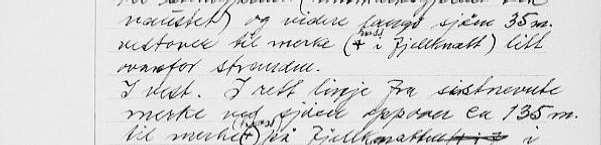 naustet) og videre langs sjøen 35 m.
vestover til merke (kors + i fjellknatt) litt
ovanfor stranden.
I vest. I rett linje fra sistnevnte
merke ved sjøen oppover ca 135 m.
til merke (kors +) på fjellknatten i